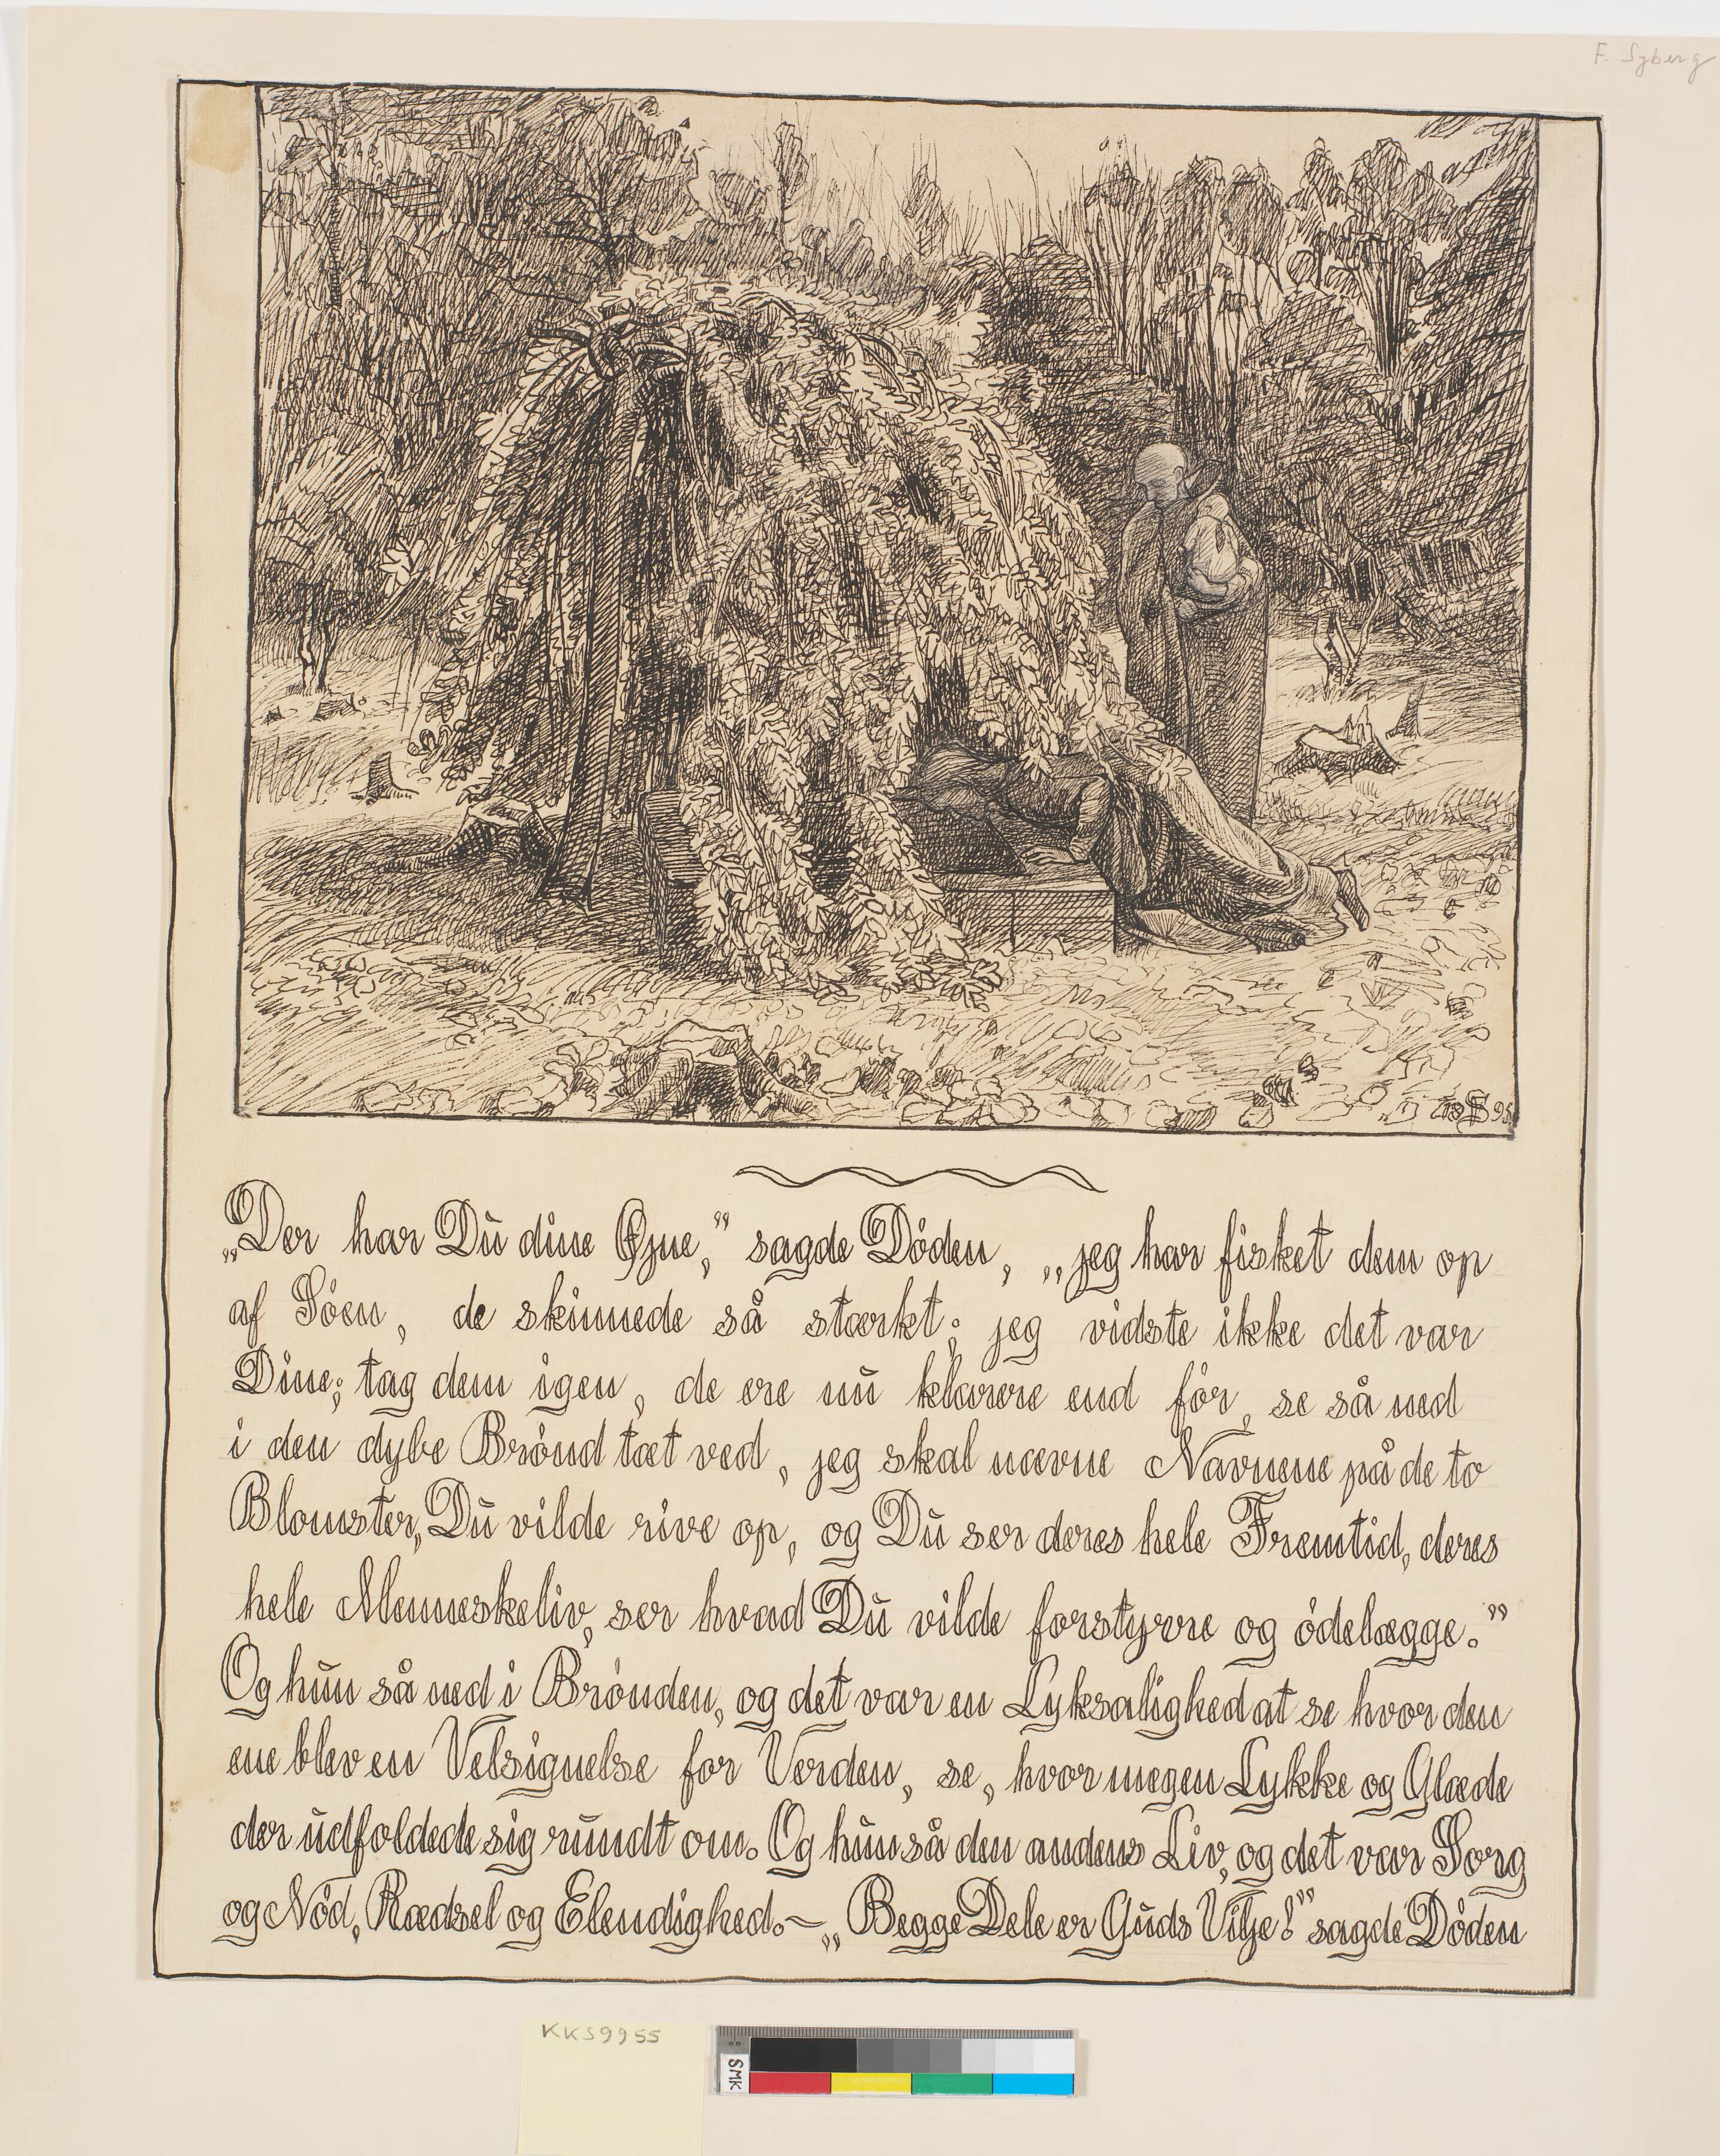 F. Syberg
FS 95
„Der har Du dine Øjne,” sagde Døden, „jeg har fisket dem op
af Søen, de skinnede så stærkt; jeg vidste ikke det var
Dine; tag dem igen, de ere nu klarere end før, se så ned
i den dybe Brønd tæt ved, jeg skal nævne Navnene på de to
Blomster, Du vilde rive op, og Du ser deres hele Fremtid, deres
hele Menneskeliv, ser hvad Du vilde forstyrre og ödelægge.”
Og hun så ned i Brønden, og det var en Lyksalighed at se hvor den
ene blev en Velsignelse for Verden, se, hvor megen Lykke og Glæde
der udfoldede sig rundt om. Og hun så den andens Liv, og det var Sorg
og Nød, Rædsel og Elendighed. ~ „Begge Dele er Guds Vilje!” sagde Døden
KKS9955
SMK